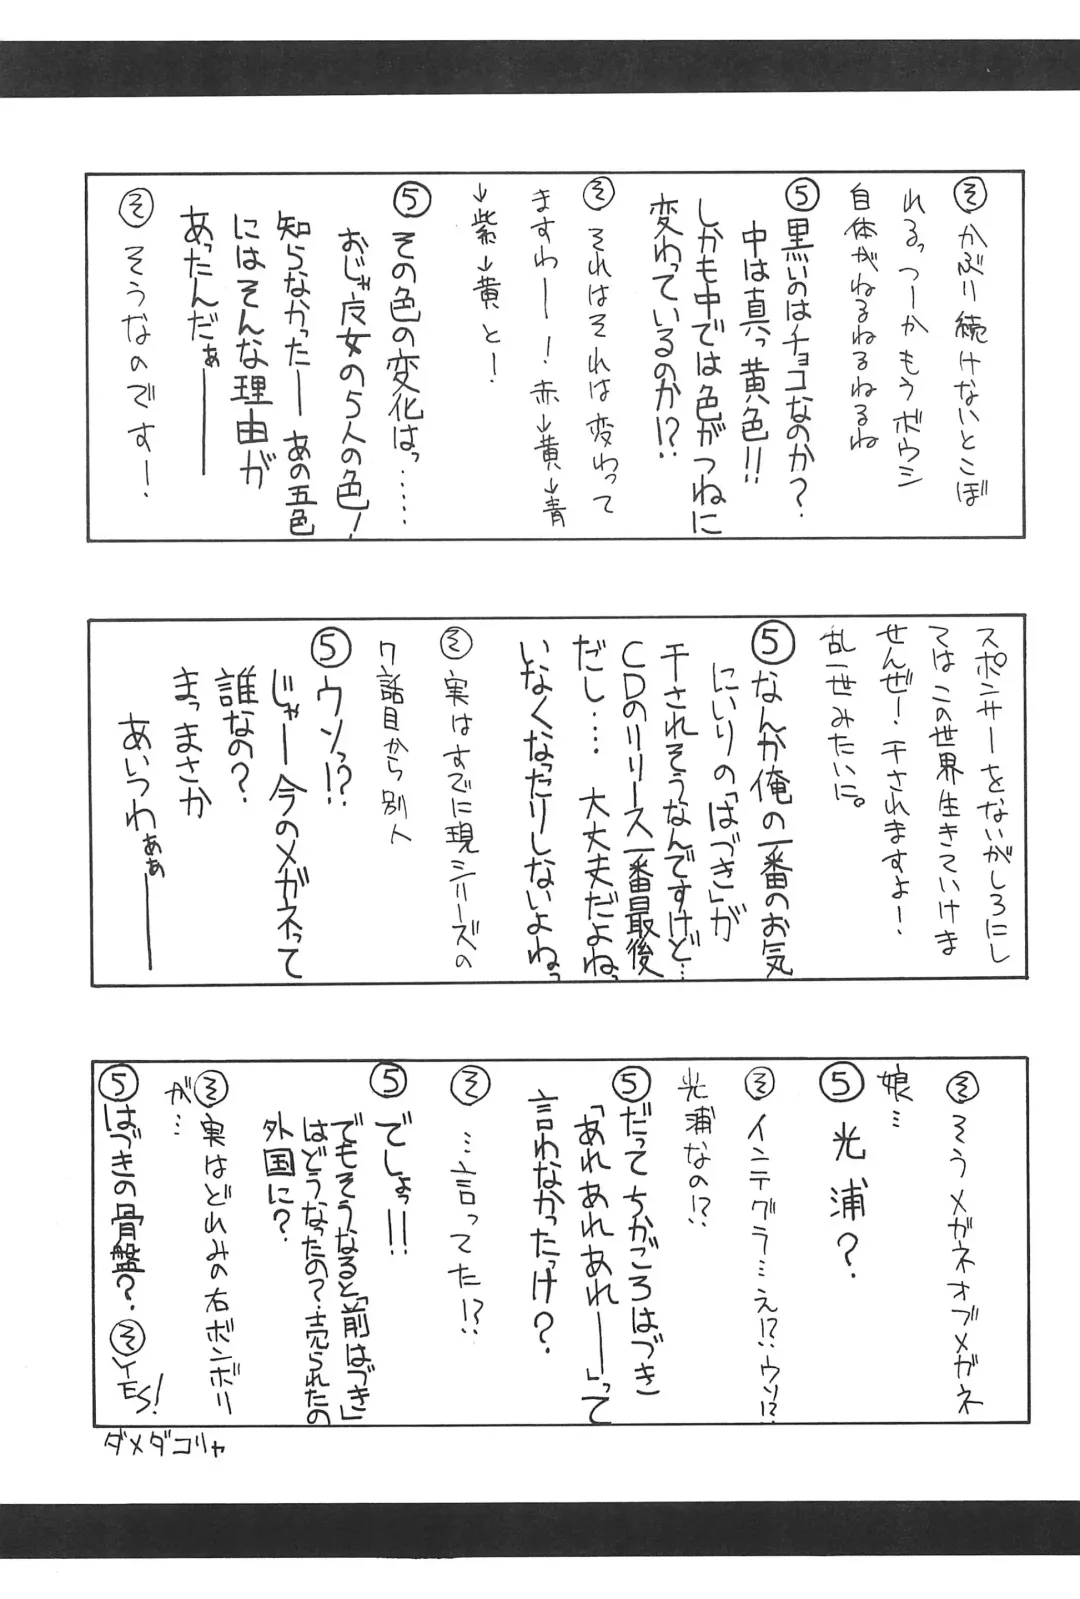 そ かぶり続けないとこぼ
れるっつーかもうボウシ
自体がねるねるねるね
5 黒いのはチョコなのか?
中は真っ黄色!!
しかも中では色がつねに
変わっているのか!?
そ それはそれは変わって
ますわー!赤→黄→青
→紫→黄と-.
5 その色の変化は……
おじゃ魔女の5人の色!
知らなかったー あの五色
にはそんな理由が
あったんだぁー
そ そうなのです!
スポンサーをないがしろにし
てはこの世界生きていけま
せんぜー!干されますよー!
乱一世みたいに。
5 なんか俺の一番のお気
にいりの「はづき」が
干されそうなんですけど…
CDのリリース一番最後
だし…。大丈夫だよねっ
いなくなったりしないよねっ
そ 実はすでに現シリーズの
7話目から別人
5 ウソっ!?
じゃー今のメガネって
誰なの?
まっまさか
あいつわぁぁー
そ そうメガネオブメガネ
娘…
5 光浦?
そ インテグラ…え!?ウソ!?
光浦なの!?
5 だってちかごろはづき
「あれあれあれー」って
言わなかったっけ?
そ …言ってた!?
5 でしょっ!!
でもそうなると「前はづき」
はどうなったの?売られたの
外国に?
そ 実はどれみの右ボンボリ
が…
5 はづきの骨盤?そYES!
ダメダコリャ